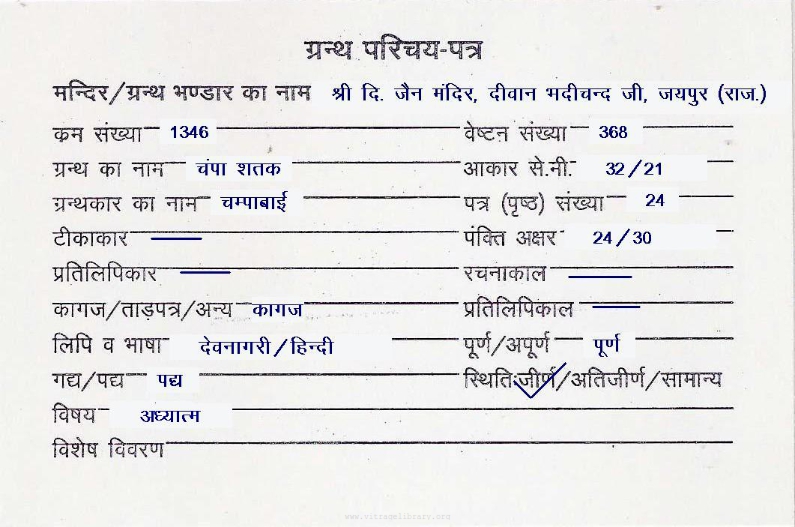 ग्रन्थ परिचय-पत्र
मन्दिर/ग्रन्थ भण्डार का नाम श्री दि. जैन मंदिर, दीवान भदीचन्द जी, जयपुर (राज.)
कम संख्या 1346 वेष्टन संख्या 368
ग्रन्थ का नाम चंपा शतक आकार से.मी. 32/21
ग्रन्थकार का नाम चम्पाबाई पत्र (पृष्ठ) संख्या 24
टीकाकार — पंक्ति अक्षर 24/30
प्रतिलिपिकार — रचनाकाल —
कागज/ताड़पत्र/अन्य कागज प्रतिलिपिकाल —
लिपि व भाषा देवनागरी/हिन्दी पूर्ण/अपूर्ण पूर्ण
गद्य/पद्य पद्य स्थितिः जीर्ण/अतिजीर्ण/सामान्य
विषय अध्यात्म
विशेष विवरण
www.vitragelibrary.com